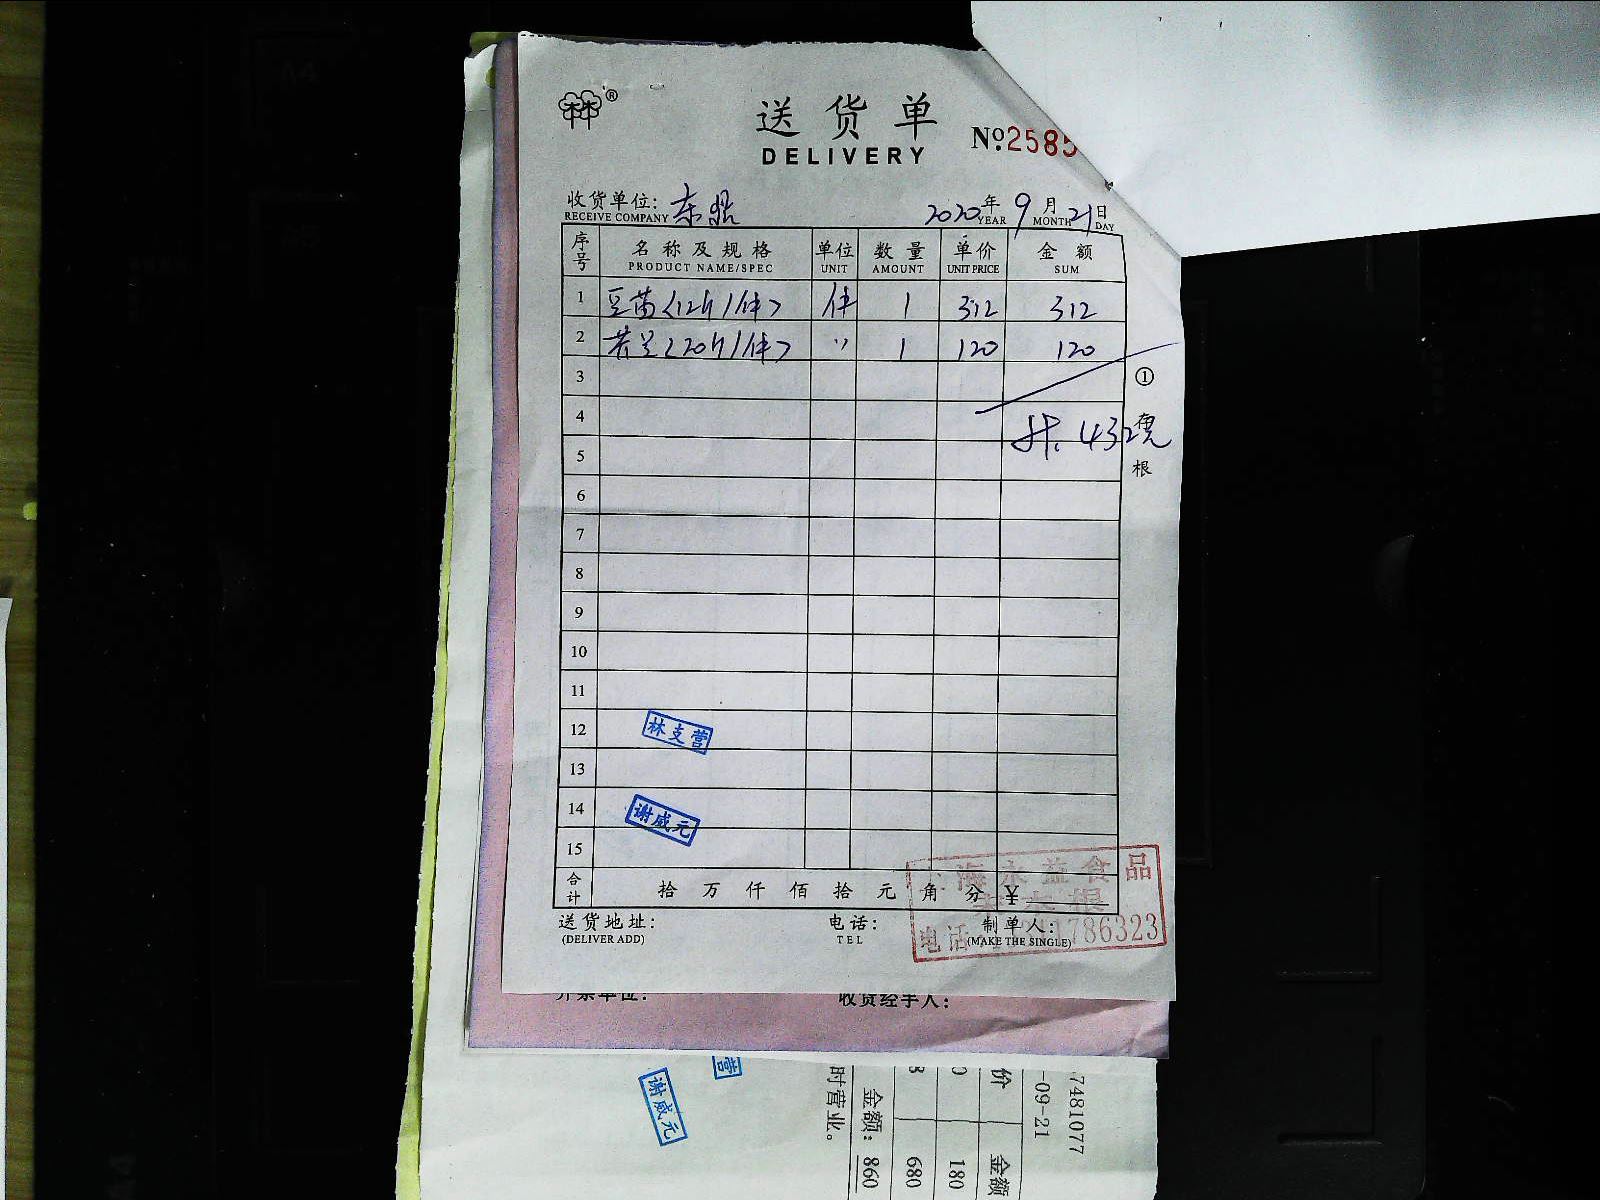 林®
送货单
DELIVERY
№:2585
收货单位: 东鼎
RECEIVE COMPANY
2020年9月21日
YEAR MONTH DAY
序号 名称及规格 单位 数量 单价 金额
PRODUCT NAME/SPEC UNIT AMOUNT UNIT PRICE SUM
1 豆苗<12斤/件> 件 1 312 312
2 <20斤/件> 〃 1 120 120
3
4
共. 432元
5
6
7
8
9
10
11
12
13
14
15
① 存根
林支营
谢威元
合计 拾万仟佰拾元角分 ¥
上海永益食品
电话 786323
送货地址: 电话: 制单人:
(DELIVER ADD) TEL (MAKE THE SINGLE)
开票单位: 收货经手人:
营
谢威元
7481077
-09-21
价 金额
0 180
680
金额: 860
时营业。
A4